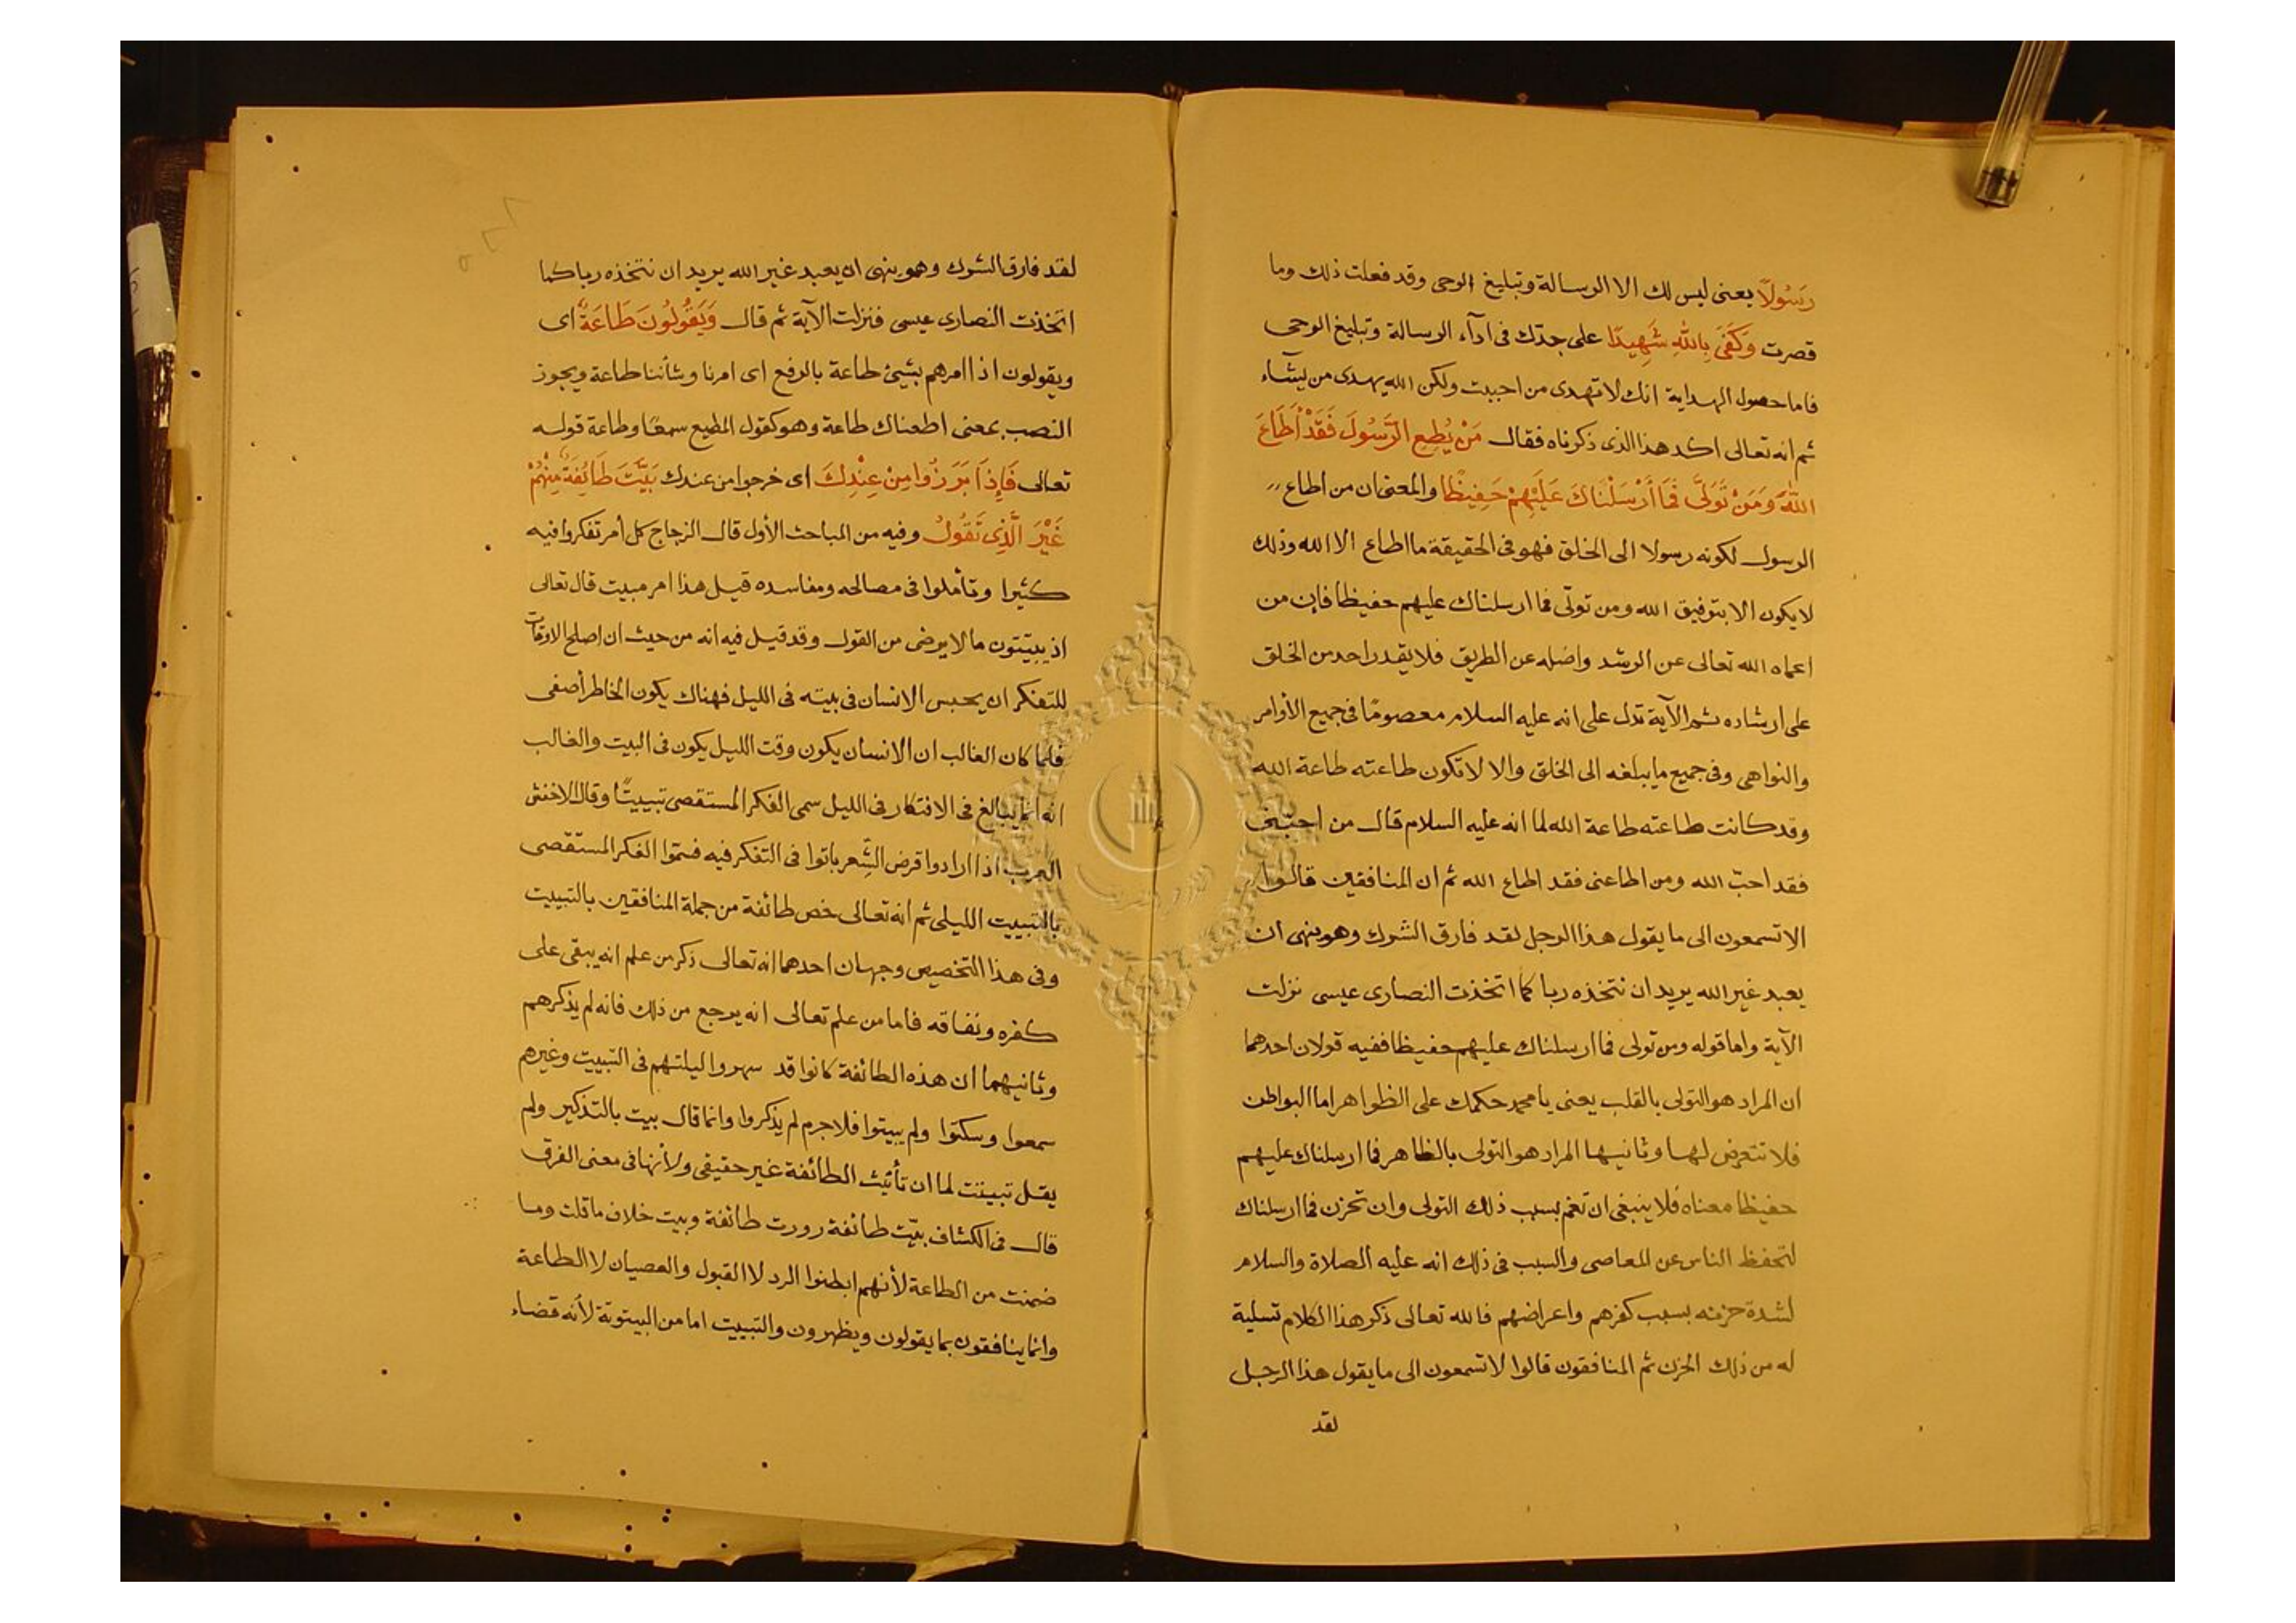 رَسُولًا يعنى ليس لك الا الرسالة وتبليغ الوحى وقد فعلت ذلك وما
قصرت وَكَفَىٰ بِاللّٰهِ شَهِيدًا على جدّك فى ادآء الرسالة وتبليغ الوحى
فاما حصول الهداية انك لا تهدى من احببت ولكن الله يهدى من يشآء
ثم انه تعالى اكد هذا الذى ذكرناه فقال مَنْ يُطِعِ الرَّسُولَ فَقَدْ أَطَاعَ
اللّٰهَ وَمَنْ تَوَلَّى فَمَا أَرْسَلْنَاكَ عَلَيْهِمْ حَفِيظًا والمعنى ان من أطاع
الرسول لكونه رسولا الى الخلق فهو فى الحقيقة ما اطاع الا الله وذلك
لا يكون الا بتوفيق الله ومن تولّى فما ارسلناك عليهم حفيظا فإن من
اعماه الله تعالى عن الرشد واضله عن الطريق فلا يقدر احد من الخلق
على ارشاده ثم الآية تدل على انه عليه السلام معصومًا فى جميع الأوامر
والنواهى وفى جميع ما يبلغه الى الخلق والا لا تكون طاعته طاعة الله
وقد كانت طاعته طاعة الله لما انه عليه السلام قال من احبّنى
فقد احبّ الله ومن اطاعنى فقد اطاع الله ثم ان المنافقين قالوا
الا تسمعون الى ما يقول هذا الرجل لقد فارق الشرك وهو ينهى ان
يعبد غير الله يريد ان نتخذه ربا كما اتخذت النصارى عيسى نزلت
الآية واما قوله ومن تولى فما ارسلناك عليهم حفيظا ففيه قولان احدهما
ان المراد هو التولى بالقلب يعنى يا محمد حكمك على الظواهر اما البواطن
فلا تتعرض لها وثانيها المراد هو التولى بالظاهر فما ارسلناك عليهم
حفيظا معناه فلا ينبغى ان تغم بسبب ذلك التولى وان تحزن فما ارسلناك
لتحفظ الناس عن المعاصى والسبب فى ذلك انه عليه الصلاة والسلام
لشدة حزنه بسبب كفرهم واعراضهم فالله تعالى ذكر هذا الكلام تسلية
له من ذلك الحزن ثم المنافقون قالوا لا تسمعون الى ما يقول هذا الرجل
لقد
لقد فارق الشرك وهو ينهى ان يعبد غير الله يريد ان نتخذه ربا كما
اتخذت النصارى عيسى فنزلت الآية ثم قال وَيَقُولُونَ طَاعَةٌ اى
ويقولون اذا امرهم بشيئ طاعة بالرفع اى امرنا وشأننا طاعة ويجوز
النصب بمعنى اطعناك طاعة وهو كقول المطيع سمعًا وطاعة قوله
تعالى فَإِذَا بَرَزُوا مِنْ عِنْدِكَ اى خرجوا من عندك بَيَّتَ طَائِفَةٌ مِنْهُمْ
غَيْرَ الَّذِى تَقُولُ وفيه من المباحث الأول قال الزجاج كل أمر تفكروا فيه
كثيرا وتأملوا فى مصالحه ومفاسده قيل هذا امر مبيت قال تعالى
اذ يبيّتون ما لا يرضى من القول وقد قيل فيه انه من حيث ان اصلح الاوقات
للتفكر ان يحبس الانسان فى بيته فى الليل فهناك يكون الخاطر أصفى
فلما كان الغالب ان الانسان يكون وقت الليل يكون فى البيت والغالب
انه انما يبالغ فى الافتكار فى الليل سمى الفكر المستقصى تبييتًا وقال الاخفش
العرب اذا ارادوا قرض الشعر باتوا فى التفكر فيه فسمّوا الفكر المستقصى
بالتبييت الليلى ثم انه تعالى خص طائفة من جملة المنافقين بالتبييت
وفى هذا التخصيص وجهان احدهما انه تعالى ذكر من علم انه يبقى على
كفره ونفاقه فاما من علم تعالى انه يرجع من ذلك فانه لم يذكرهم
وثانيهما ان هذه الطائفة كانوا قد سهروا ليلتهم فى التبييت وغيرهم
سمعوا وسكتوا ولم يبيتوا فلا جرم لم يذكروا وانما قال بيت بالتذكير ولم
يقل تبيتت لما ان تأنيث الطائفة غير حقيقى ولأنها فى معنى الفرق
قال فى الكشاف بيّت طائفة زورت طائفة وبيت خلاف ما قلت وما
ضمنت من الطاعة لأنهم ابطنوا الرد لا القبول والعصيان لا الطاعة
وانما ينافقون بما يقولون ويظهرون والتبييت اما من البيتوتة لأنه قضاء